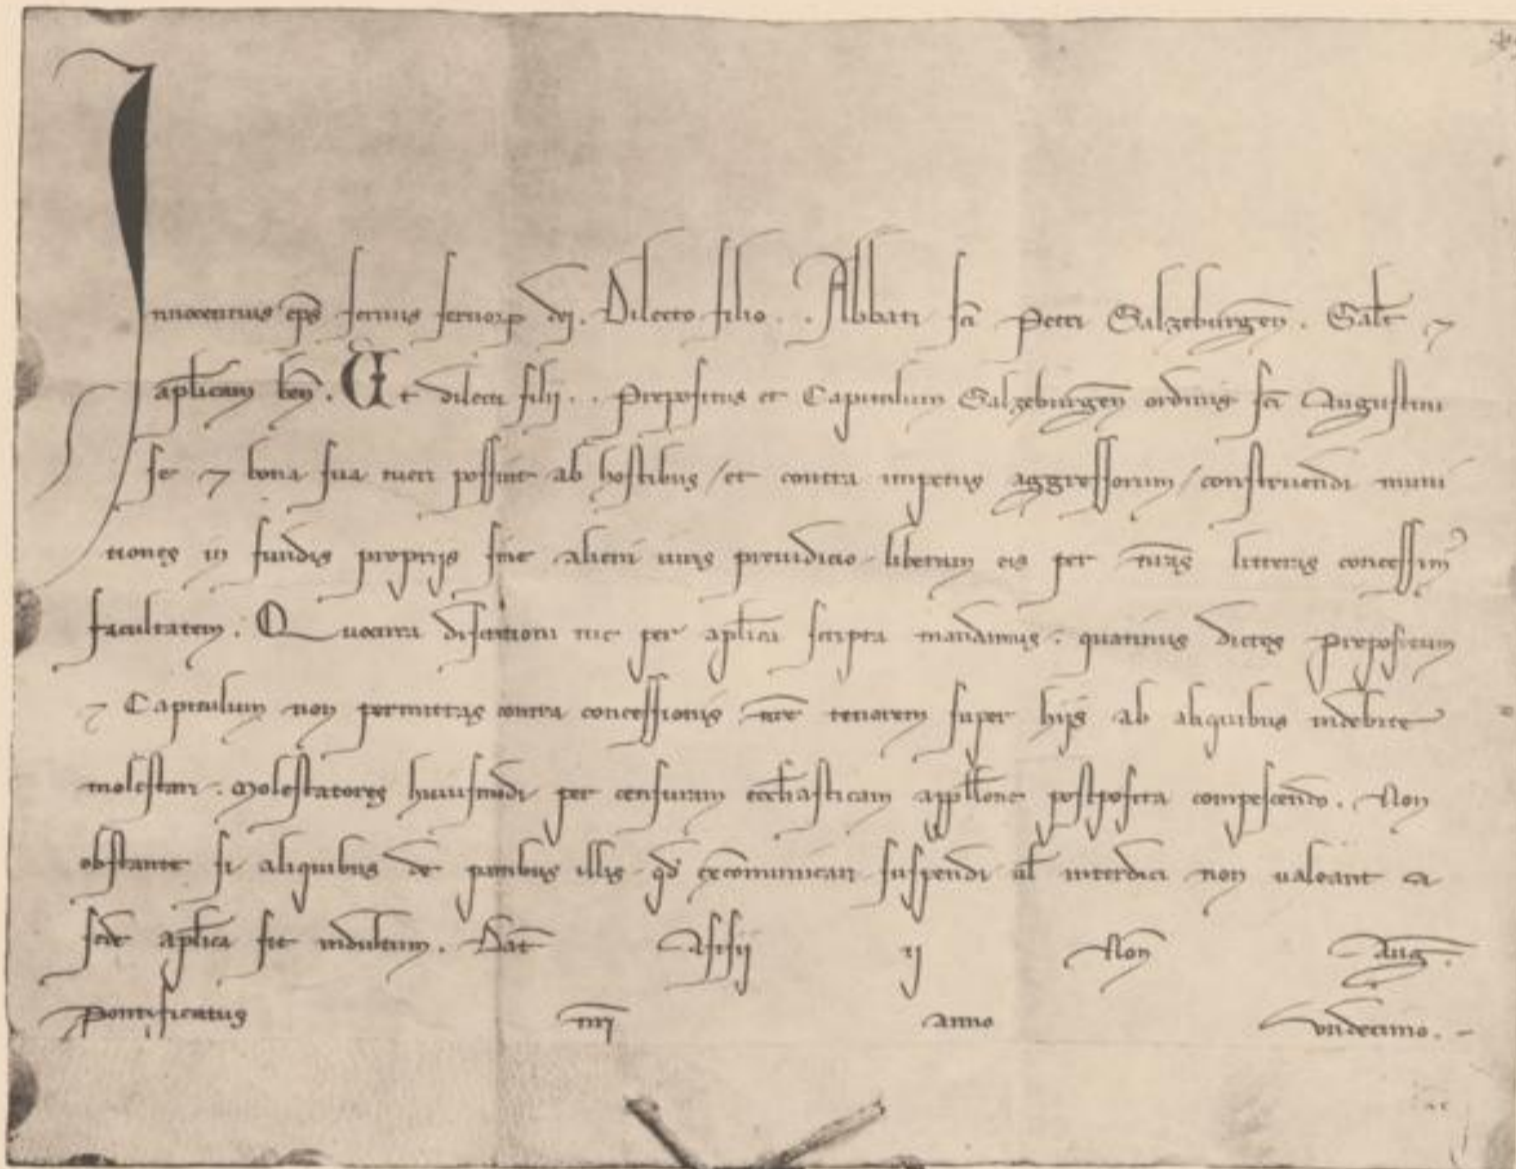 Innocentius ep̄s seruus seruoꝝ dei. Dilecto filio . . Abbati sc̄i Petri Salzeburgeñ. Salt̄ ⁊
apl̄icam beñ. Ut dilecti filij . . Prepositus et Capitulum Salzeburgeñ ordinis sc̄i Augustini
se ⁊ bona sua tueri possint ab hostibus / et contra impetus aggressorum / construendi muni
tiones in fundis proprijs sine alieni iuris preiudicio liberam eis per nr̄as litteras concessimꝰ
facultatem. Quocirca discretioni tue per apl̄ica scripta mandamus. quatinus dictos Prepositum
⁊ Capitulum non permittas contra concessionis nr̄e tenorem super hijs ab aliquibus indebite
molestari. Molestatores huiusmodi per censuram eccl̄iasticam appell̄one postposita compescendo. Non
obstante si aliquibus de partibus illis qd̄ exc̄omunicari suspendi ul̄ interdici non ualeant a
sede apl̄ica sit indultum. Dat̄ Asisij ij Noñ Aug̃.
Pontificatus nr̄i anno Vndecimo. -